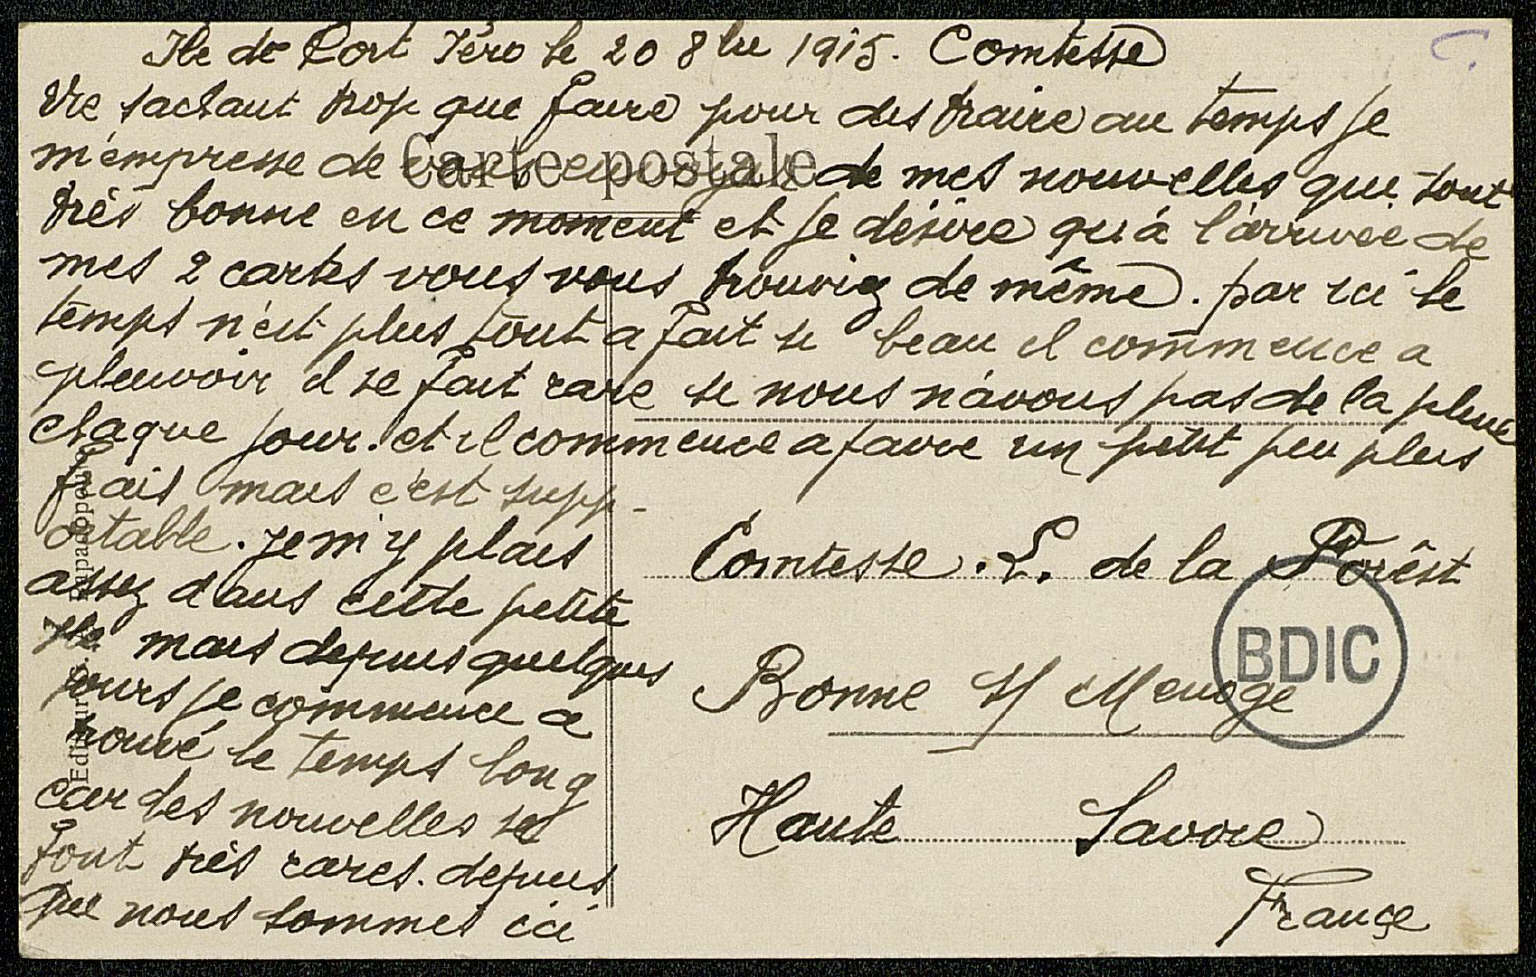 Ile de Port Iéro le 20 8bre 1915. Comtesse
Ne sachant trop que faire pour des traire au temps je
m'empresse de vous envoyer de mes nouvelles qui sont
Carte postale
très bonne en ce moment et je désire qu'à l'arrivée de
mes 2 cartes vous vous trouviez de même. par ici le
temps n'est plus tout a fait si beau il commence a
pleuvoir il se fait rare si nous n'avons pas de la pluie
chaque jour. et il commence a faire un petit peu plus
frais mais c'est supp-
ortable. Je m'y plais
assez dans cette petite
Ile mais depuis quelques
jours je commence a
trouvé le temps long
car les nouvelles se
font très rares. depuis
que nous sommes ici
Comtesse. L. de la Forêst
Bonne s/ Menoge
Haute Savoie
France
BDIC
Editeurs Papadopoulos